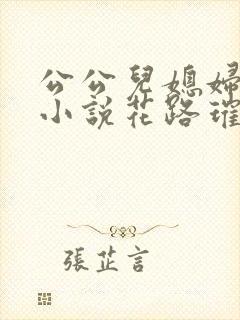 公公兒媳婦
小說花路璀
張芷言